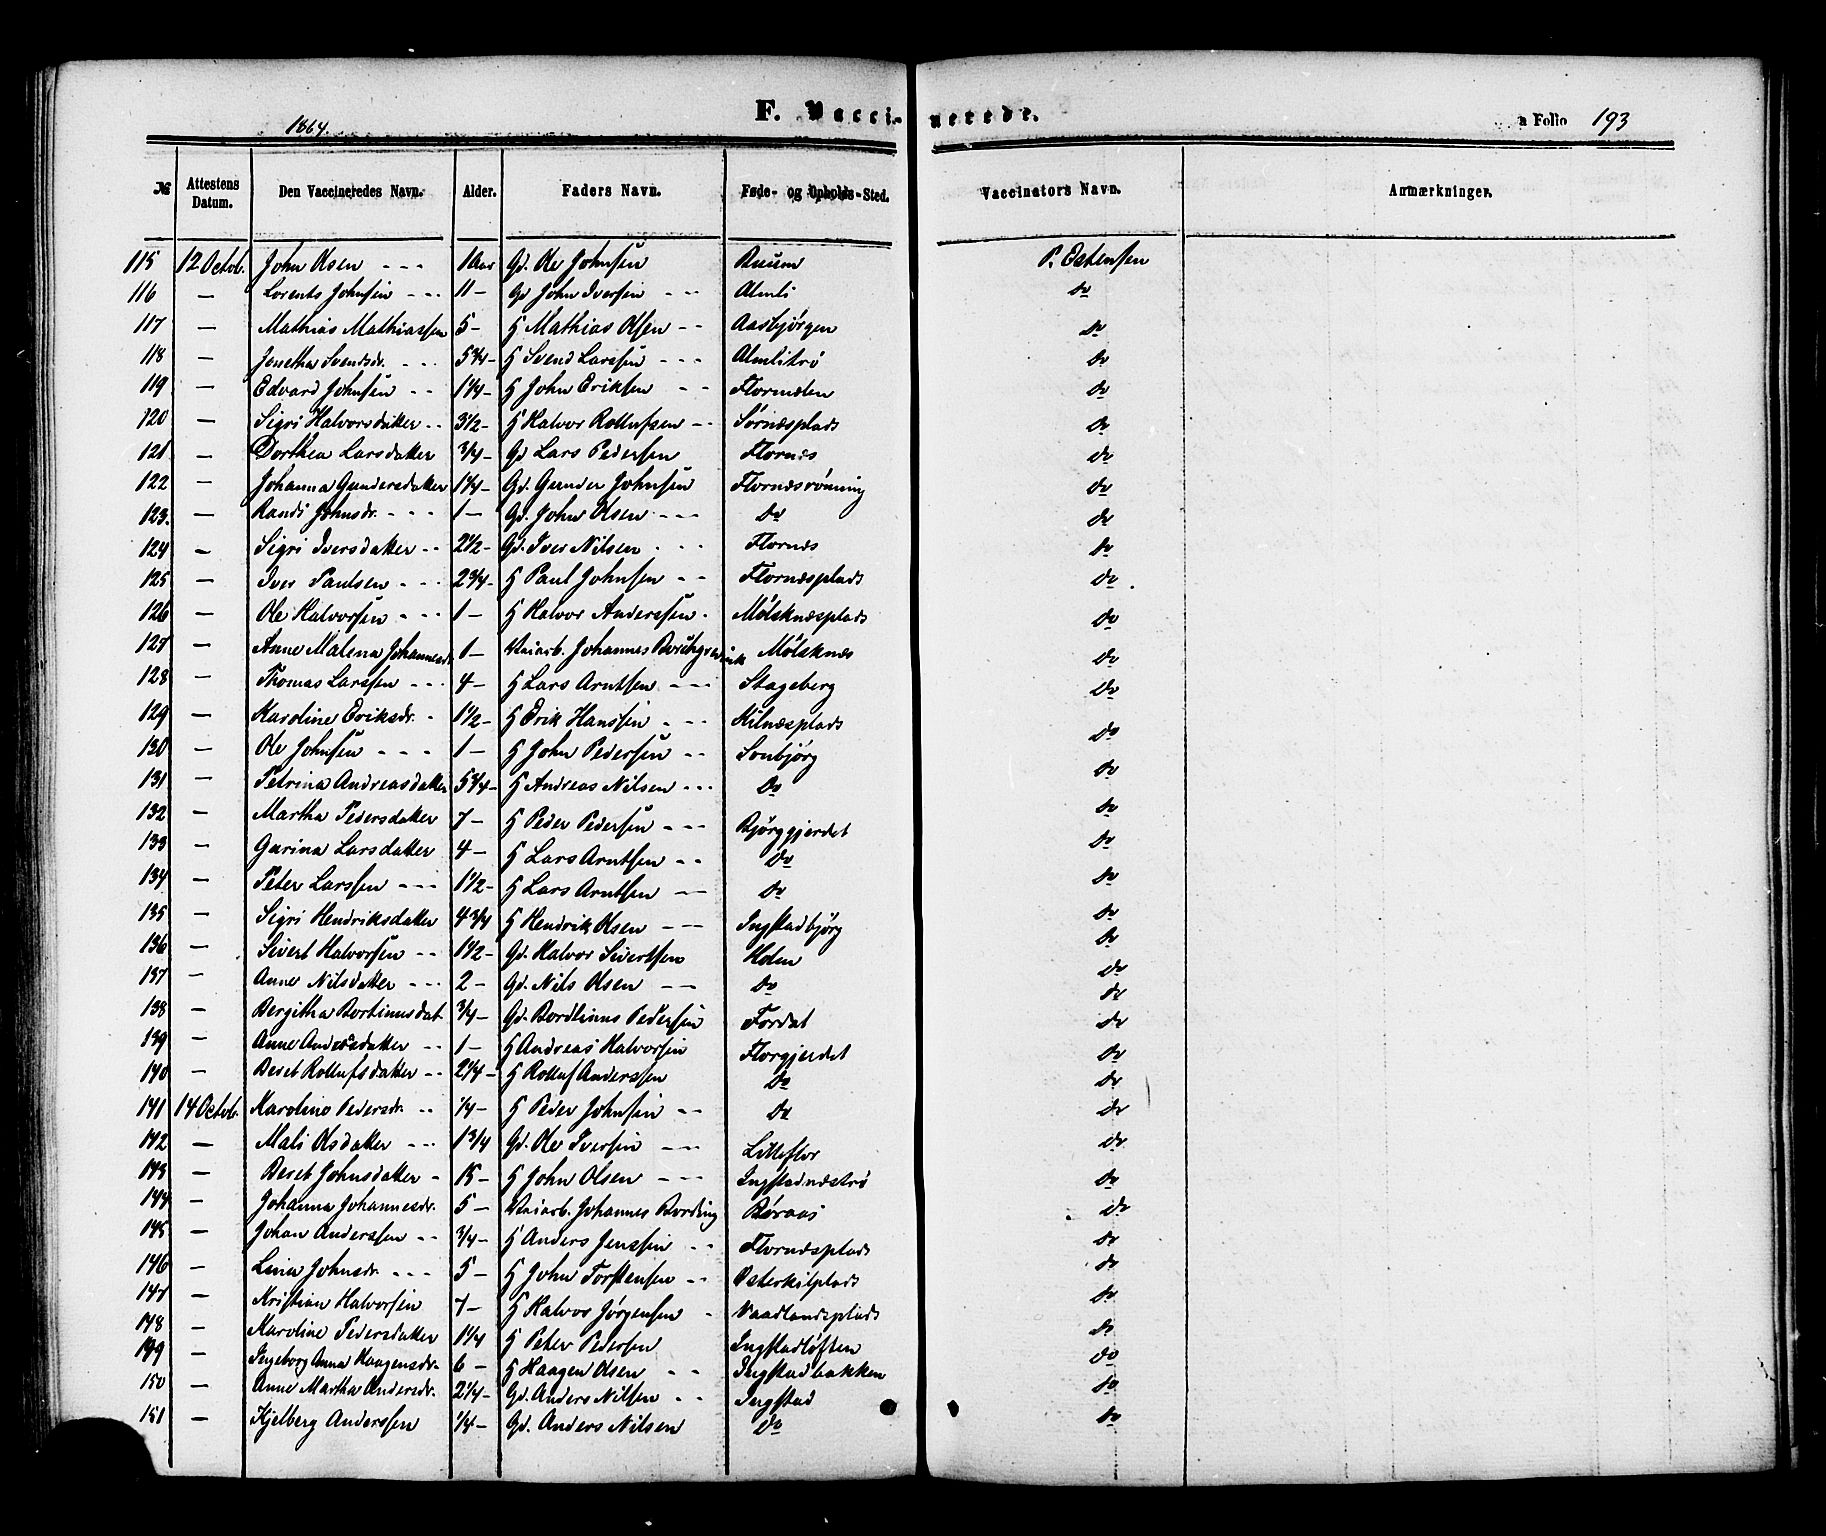 1864.
F. Vaccinerede.
a Folio 193
№ Attestens Datum. Den Vaccineredes Navn. Alder. Faders Navn. Føde- og Opholds-Sted. Vaccinators Navn. Anmærkninger.
115 12 Octob. John Olsen - - - 1 Aar Gd. Ole Johnsen Buum P. Estensen
116 — Lorents Johnsen - - - 11 - Gd John Iversen - - Almli do
117 — Mathias Mathiassen 5 - H Mathias Olsen - - Aasbjørgen do
118 — Jonetha Svendsdr. - - - 5 3/4 - H Svend Larssen - - - Almlitrø do
119 — Edvard Johnsen - - 1 1/4 - H John Eriksen - - Flormælen do
120 — Sigri Halvorsdatter - - 3 1/2 - H Halvor Rollufsen - - Sørnæsplads do
121 — Dorthea Larsdatter 3/4 - Gd Lars Pedersen Flornes do
122 — Johanna Gundersdatter 1 1/4 - Gd. Gunder Johnsen Flornæsrønning do
123. — Randi Johnsdr. - - - 1 - Gd. John Olsen - - - Do do
124 — Sigri Iversdatter - - 2 1/2 - Gd. Iver Nilsen - - - Flornæs do
125 — Iver Paulsen - - - 2 3/4 - H Paul Johnsen - - Flornæsplads do
126 — Ole Halvorsen - - - 1 - H Halvor Anderssen - Mølsknæsplads do
127 — Anne Malena Johannesdr. 1 - Veiarb. Johannes Borchgrevink Mølsknæs do
128 — Thomas Larssen - - - 4 - H Lars Arntsen - - - Stageberg do
129 — Karoline Eriksdr. - 1 1/2 - H Erik Hanssen - - - Kilnæsplads do
130 — Ole Johnsen - - - 1 - H John Pedersen - - Sonbjørg do
131 — Petrina Andreasdatter 5 3/4 - H Andreas Nilsen - - - Do do
132 — Martha Pedersdatter 7 - H Peder Pedersen - - - Bjørggjerdet do
133 — Gurina Larsdatter 4 - H Lars Arntsen - - Do do
134 — Peter Larssen - - - 1 1/2 - H Lars Arntsen - - Do do
135 — Sigri Hendriksdatter 4 3/4 H Hendrik Olsen - - - Ingstadbjørg do
136 — Sivert Halvorsen - - 1 1/2 - Gd. Halvor Sivertsen Holm do
137 — Anne Nilsdatter - - - 2 - Gd. Nils Olsen - - Do do
138 — Bergitha Bortinusdat. 3/4 - Gd. Bordtinus Pedersen Fordal do
139 — Anne Andersdatter - - 1 - H Andreas Halvorsen Florgjerdet do
140 — Beret Rollufsdatter - - 2 1/4 - H Rolluf Anderssen Do do
141 14 Octob. Karolino Pedersdr. - - 1/4 - H Peder Johnsen - - Do do
142 — Mali Olsdatter - - - 1 3/4 Gd. Ole Iversen - - - Litleflor do
143 — Beret Johnsdatter - 15 - H John Olsen - - - Ingstadnæstrø do
144 — Johanna Johannesdr. 5 - Veiarb. Johannes Bording Børaas do
145 — Johan Anderssen - - 3/4 - H Anders Jenssen - - Flornæsplads do
146 — Lina Johnsdr. - - - 5 - H John Torstensen - - Østerkilplads do
147 — Kristian Halvorsen 7 - H Halvor Jørgensen - Vaadlandsplads do
148 — Karoline Pedersdatter 1 1/4 H Peter Pedersen Ingstadløften do
149 — Ingeborg Anna Haagensdr. 6 - H Haagen Olsen - - Ingstadbakken do
150 — Anne Martha Andersdr. 2 1/4 - Gd. Anders Nilsen - - Ingstad do
151 — Kjelberg Anderssen 1/4 - Gd. Anders Nilsen Do do